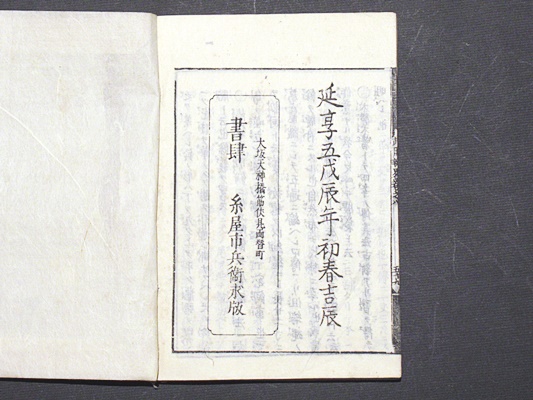 延享五戊辰年初春吉辰
大坂天神橋筋伏見両替町
書肆 糸屋市兵衛求版